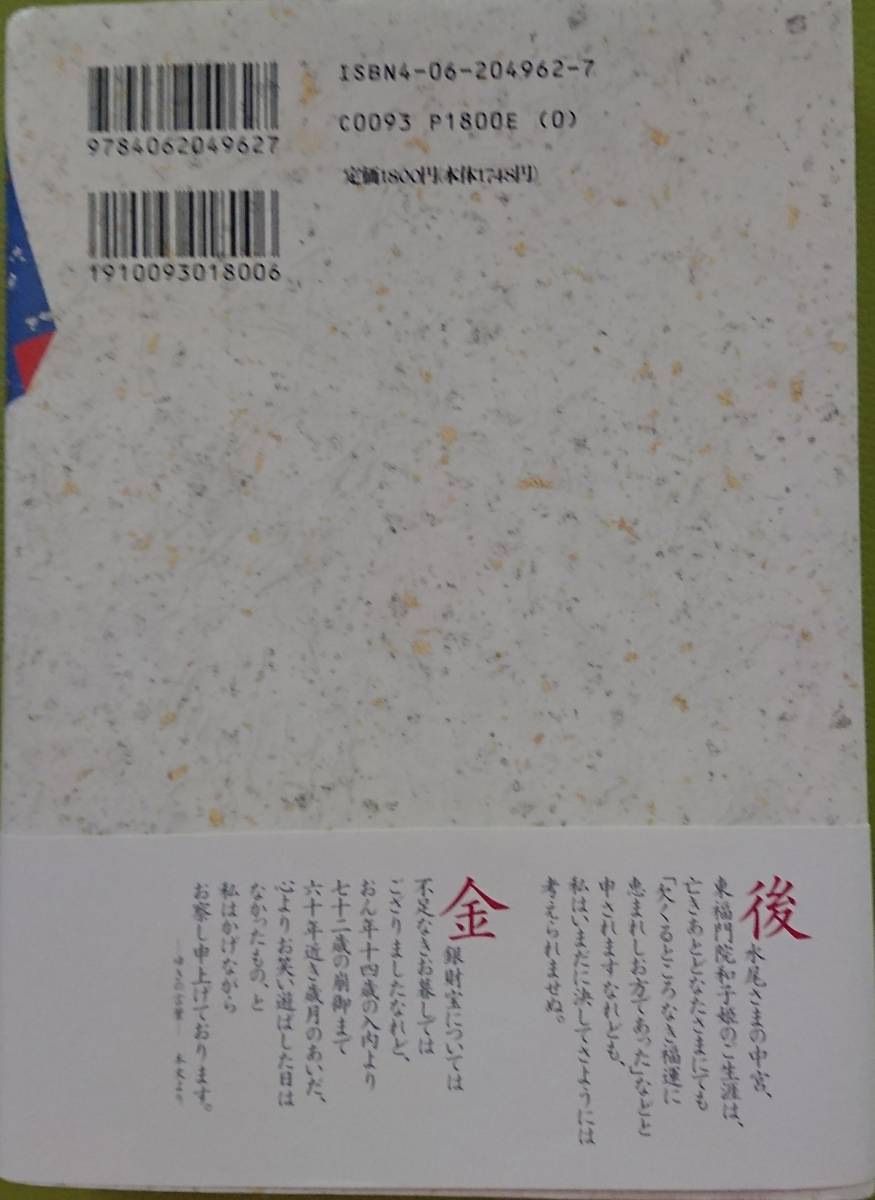 9784062049627
1910093018006
ISBN4-06-204962-7
C0093 P1800E (0)
定価1800円(本体1748円)
後水尾さまの中宮、
東福門院和子姫のご生涯は、
亡きあとどなたさまにても
「欠くるところなき福運に
恵まれしお方であった」などと
申されますなれども、
私はいまだに決してさようには
考えられませぬ。
金銀財宝については
不足なきお暮しでは
ござりましたなれど、
おん年十四歳の入内より
七十二歳の崩御まで
六十年近き歳月のあいだ、
心よりお笑い遊ばした日は
なかったもの、と
私はかげながら
お察し申上げております。
―ゆきの言葉― 本文より